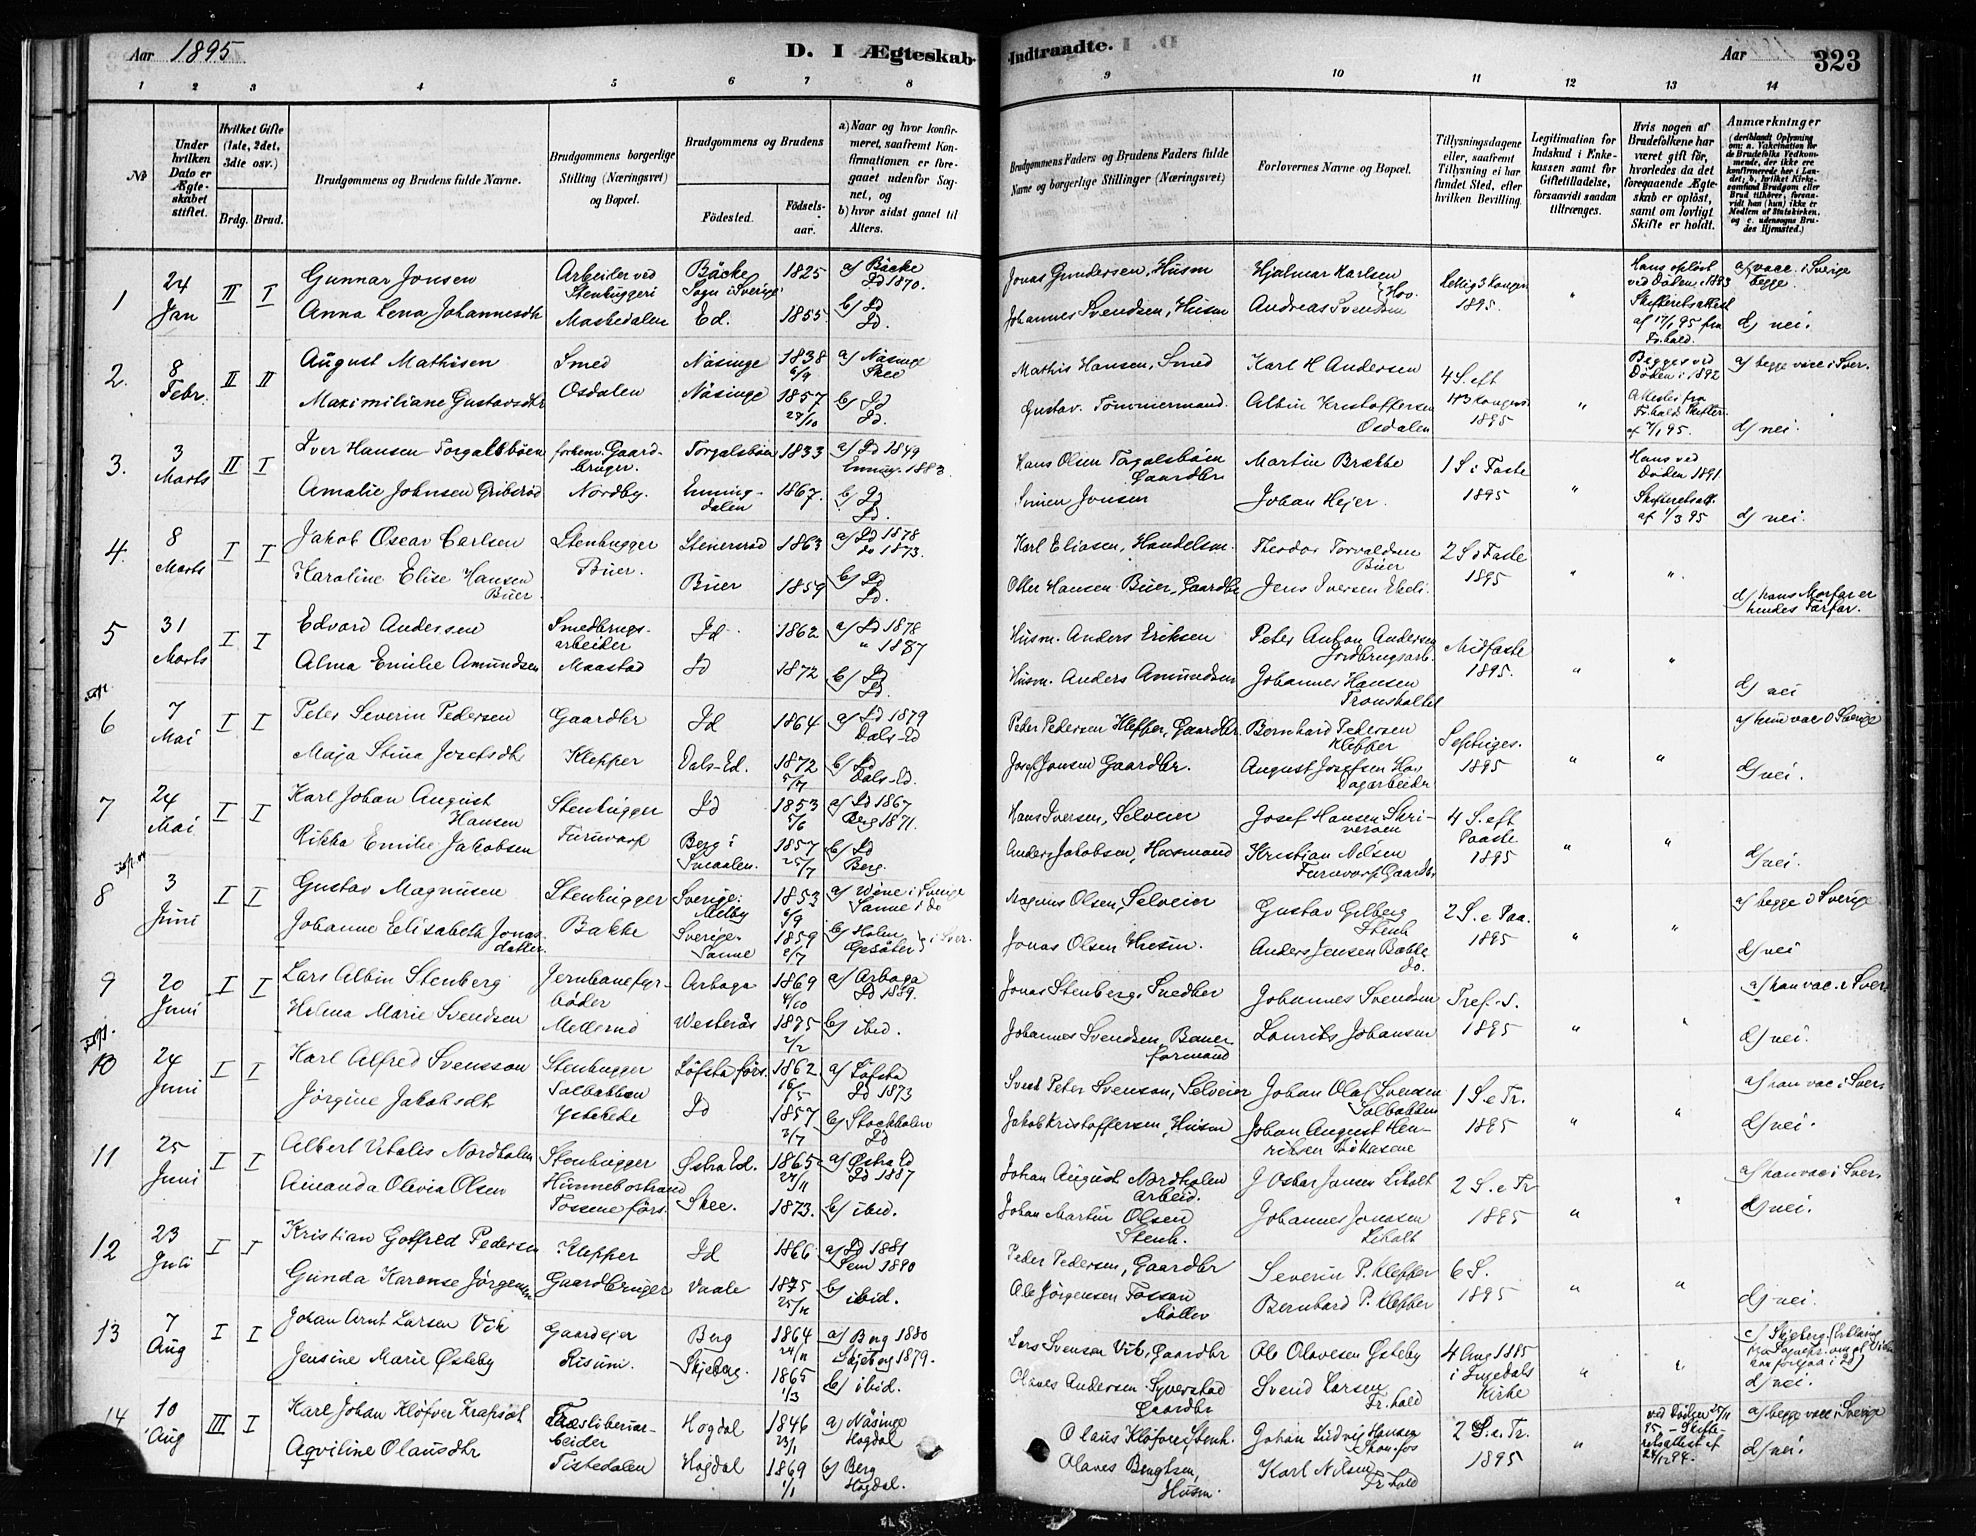 Aar 1895
D. I Ægteskab Indtraadte.
Aar
323
1 2 3 4 5 6 7 8 9 10 11 12 13 14
No
Under hvilken Dato er Ægteskabet stiftet.
Hvilket Gifte (1ste, 2det, 3die osv.)
Brdg. Brud.
Brudgommens og Brudens fulde Navne.
Brudgommens borgerlige Stilling (Næringsvei) og Bopæl.
Brudgommens og Brudens
Födested. Födselsaar.
a) Naar og hvor konfirmeret, saafremt Konfirmationen er foregaaet udenfor Sognet, og
b) hvor sidst gaaet til Alters.
Brudgommens Faders og Brudens Faders fulde Navne og borgerlige Stillinger (Næringsvei)
Forlovernes Navne og Bopæl.
Tillysningsdagene eller, saafremt Tillysning ei har fundet Sted, efter hvilken Bevilling.
Legitimation for Indskud i Enkekassen samt for Giftetilladelse, forsaavidt saadan tiltrænges.
Hvis nogen af Brudefolkene har været gift för, hvorledes da det foregaaende Ægteskab er oplöst, samt om lovligt Skifte er holdt.
Anmærkninger
1 24 Jan II I
Gunnar Jonsen
Anna Lena Johannesdtr
Arbeider ved Stenhuggeri
Bäcke Sogn i Sverige 1825
Ed. 1855
a) Bäcke Id 1870.
b) Id Id.
Jonas Gundersen, Husm
Johannes Svendsen, Husm
Hjalmar Karlsen
Andreas Svendsen
1895.
" d) nei.
2. 8 Febr. II II
August Mathisen
Maximiliane Gustavsdtr
Smed
Osdalen
Näsinge 1838 6/9
Näsinge 1857 27/10
a) Näsinge Skee
b) Id Id.
Mathis Hansen, Smed
Gustav. Tömmermand.
Karl H Andersen
Albin Kristoffersen Osdalen
4 S. eft
1895
"
Begges ved Döden i 1892
a) begge vacc i Sver.
d) nei.
3. 3 Marts II I
Iver Hansen Torgalsböen
Amalie Johnsen Gribsröd
forhenv. Gaardbruger.
Nordby.
Torgalsböen 1833
Enningdalen 1867.
a) Id 1849
Enning. 1883.
b) Id Id.
Hans Olsen Torgalsböen Gaardbr
Simen Jonsen
Martin Brække
Johan Hejer.
1 S i Faste
1895
"
Hans ved Döden 1891
Skifteretsatt. af 1/3 95
d) nei.
4. 8 Marts I I
Jakob Oscar Carlsen
Karoline Elise Hansen Buer
Stenhugger
Buer.
Stenersröd 1863
Buer 1859
a) Id 1878
do 1873.
b) Id Id.
Karl Eliasen, Handelsm.
Otter Hansen Buer, Gaardbr
Theodor Torvaldsen Buer
Jens Iversen
2 S i Faste
1895
" "
d) hans Morfar er hendes Farfar.
5 31 Marts I I
Edvard Andersen
Alma Emilie Amundsen
Smedbrugsarbeider
Maastad
Id 1862
Id 1872
a) Id 1878
" 1887
b) Id Id.
Husm. Anders Eriksen
Husm. Anders Amundsen
Peter Anton Andersen Jordbrugsarb.
Johannes Hansen
Midfaste
1895.
" "
d) nei
6 7 Mai I I
Peter Severin Pedersen
Maja Stina Jozefsdtr
Gaardbr
Klepper
Id 1864
Dals-Ed. 1872 5/7
a) Id 1879
Dals-Ed
b) Id
Dals-Ed.
Peter Pedersen Klepper, Gaardbr.
Josef Jonsen Gaardbr.
Bernhard Pedersen Klepper
August Josefsen Hov, Dagarbeider
Septuages.
1895
" "
a) hun vac i Sverige
d) nei.
7 24 Mai I I
Karl Johan August Hansen
Rikka Emilie Jakobsen
Stenhugger
Furuvarp
Id 1853 5/6
Berg i Smaalen. 1857 25/7
a) Id 1867
Berg 1871.
b) Id
Berg.
Hans Iversen, Selveier
Anders Jakobsen, Husmand
Josef Hansen Skriveröen
Kristian Nilsen Furuvarp Gaardbr
4 S. eft Paaske
1895
" "
d) nei.
8 3 Juni I I
Gustav Magnusen
Johanne Elisabeth Jonasdatter
Stenhugger
Bakke
Sverige. 1853 6/9
Sverige. Sanne 1859 2/7
Magnus Olsen, Selveier
Jonas Olsen Husm.
Gustav Gilberg Stenh
Anders Jensen Bakke do.
2 S. e Paa.
1895
" "
a) begge i Sverige
d) nei
9 20 Juni I I
Lars Albin Stenberg
Helma Marie Svendsen
Mellerud
Arboga 1869 4/10
Westerås 1875 2/2
a) Arboga
Id 1889.
b) ibid.
Jonas Stenberg, Snedker
Johannes Svendsen, Baneformand
Johannes Svendsen
Laurits Johansen
Tref. S.
1895
" "
a) han vac. i Sver
d) nei.
10 24 Juni I I
Karl Alfred Svensson
Jörgine Jakobsdtr
Stenhugger
Solbakken
Ystehede
Löfsta förs. 1862. 16/5
Id 1857 2/7
a) Löfsta
Id 1873
b) Stockholm
Id
Svend Peter Svenson, Selveier
Jakob Kristoffersen, Husm
Johan Olaf Svensen Solbakken
Johan August Henriksen
1 S. e Tr.
1895
" "
a) han vac i Sver.
d) nei.
11 25 Juni I I
Albert Vitalis Nordholm
Amanda Olivia Olsen
Stenhugger
Hunnebostrand
Tossene förs.
Östra Ed. 1865 24/11
Skee. 1873.
a) Östra Ed
Id 1887
b) ibid.
Johan August Nordholm Arbeid.
Johan Martin Olsen Stenh.
J Oskar Jansen Liholt
Johannes Jonassen Liholt
2 S. e Tr
1895
" "
a) han vac i Sver.
d) nei.
12 23 Juli I I
Kristian Gotfred Pedersen
Gunda Karense Jörgensen
Klepper
Gaardbruger
Id 1866
Vaale 1875 25/11
a) Id 1881
Sem 1890
b) ibid.
Peder Pedersen, Gaardbr
Ole Jörgensen Fossan Möller
Severin P. Klepper
Bernhard P. Klepper
6 S.
1895
" "
d) nei.
13 7 Aug I I
Johan Arnt Larsen Vik
Jensine Marie Östeby
Gaardejer
Risum.
Berg 1864 24/11
Skjeberg. 1865 1/3
a) Berg 1880
Skjeberg 1879.
b) ibid.
Lars Svensen Vik, Gaardbr
Olaves Andersen Syverstad Gaardbr
Ole Olavesen Östeby
Svend Larsen Fr.hald
4 Aug 1895
i Ingedals Kirke
" "
d) nei.
14 10 Aug III I
Karl Johan Klöfver
Aqviline Olausdtr
Træsliberiarbeider
Tistedalen
Hogdal 1846 23/1
Hogdal 1869 1/1
a) Näsinge
Hogdal
b) Berg
Hogdal.
Olaus Klöfver, Stenh.
Olaves Bengtsen, Husm.
Johan Ludvig Hansen
Karl Nilsen Fr hald
2 S. e. Tr.
1895
"
a) begge vacc i Sverige
d) nei